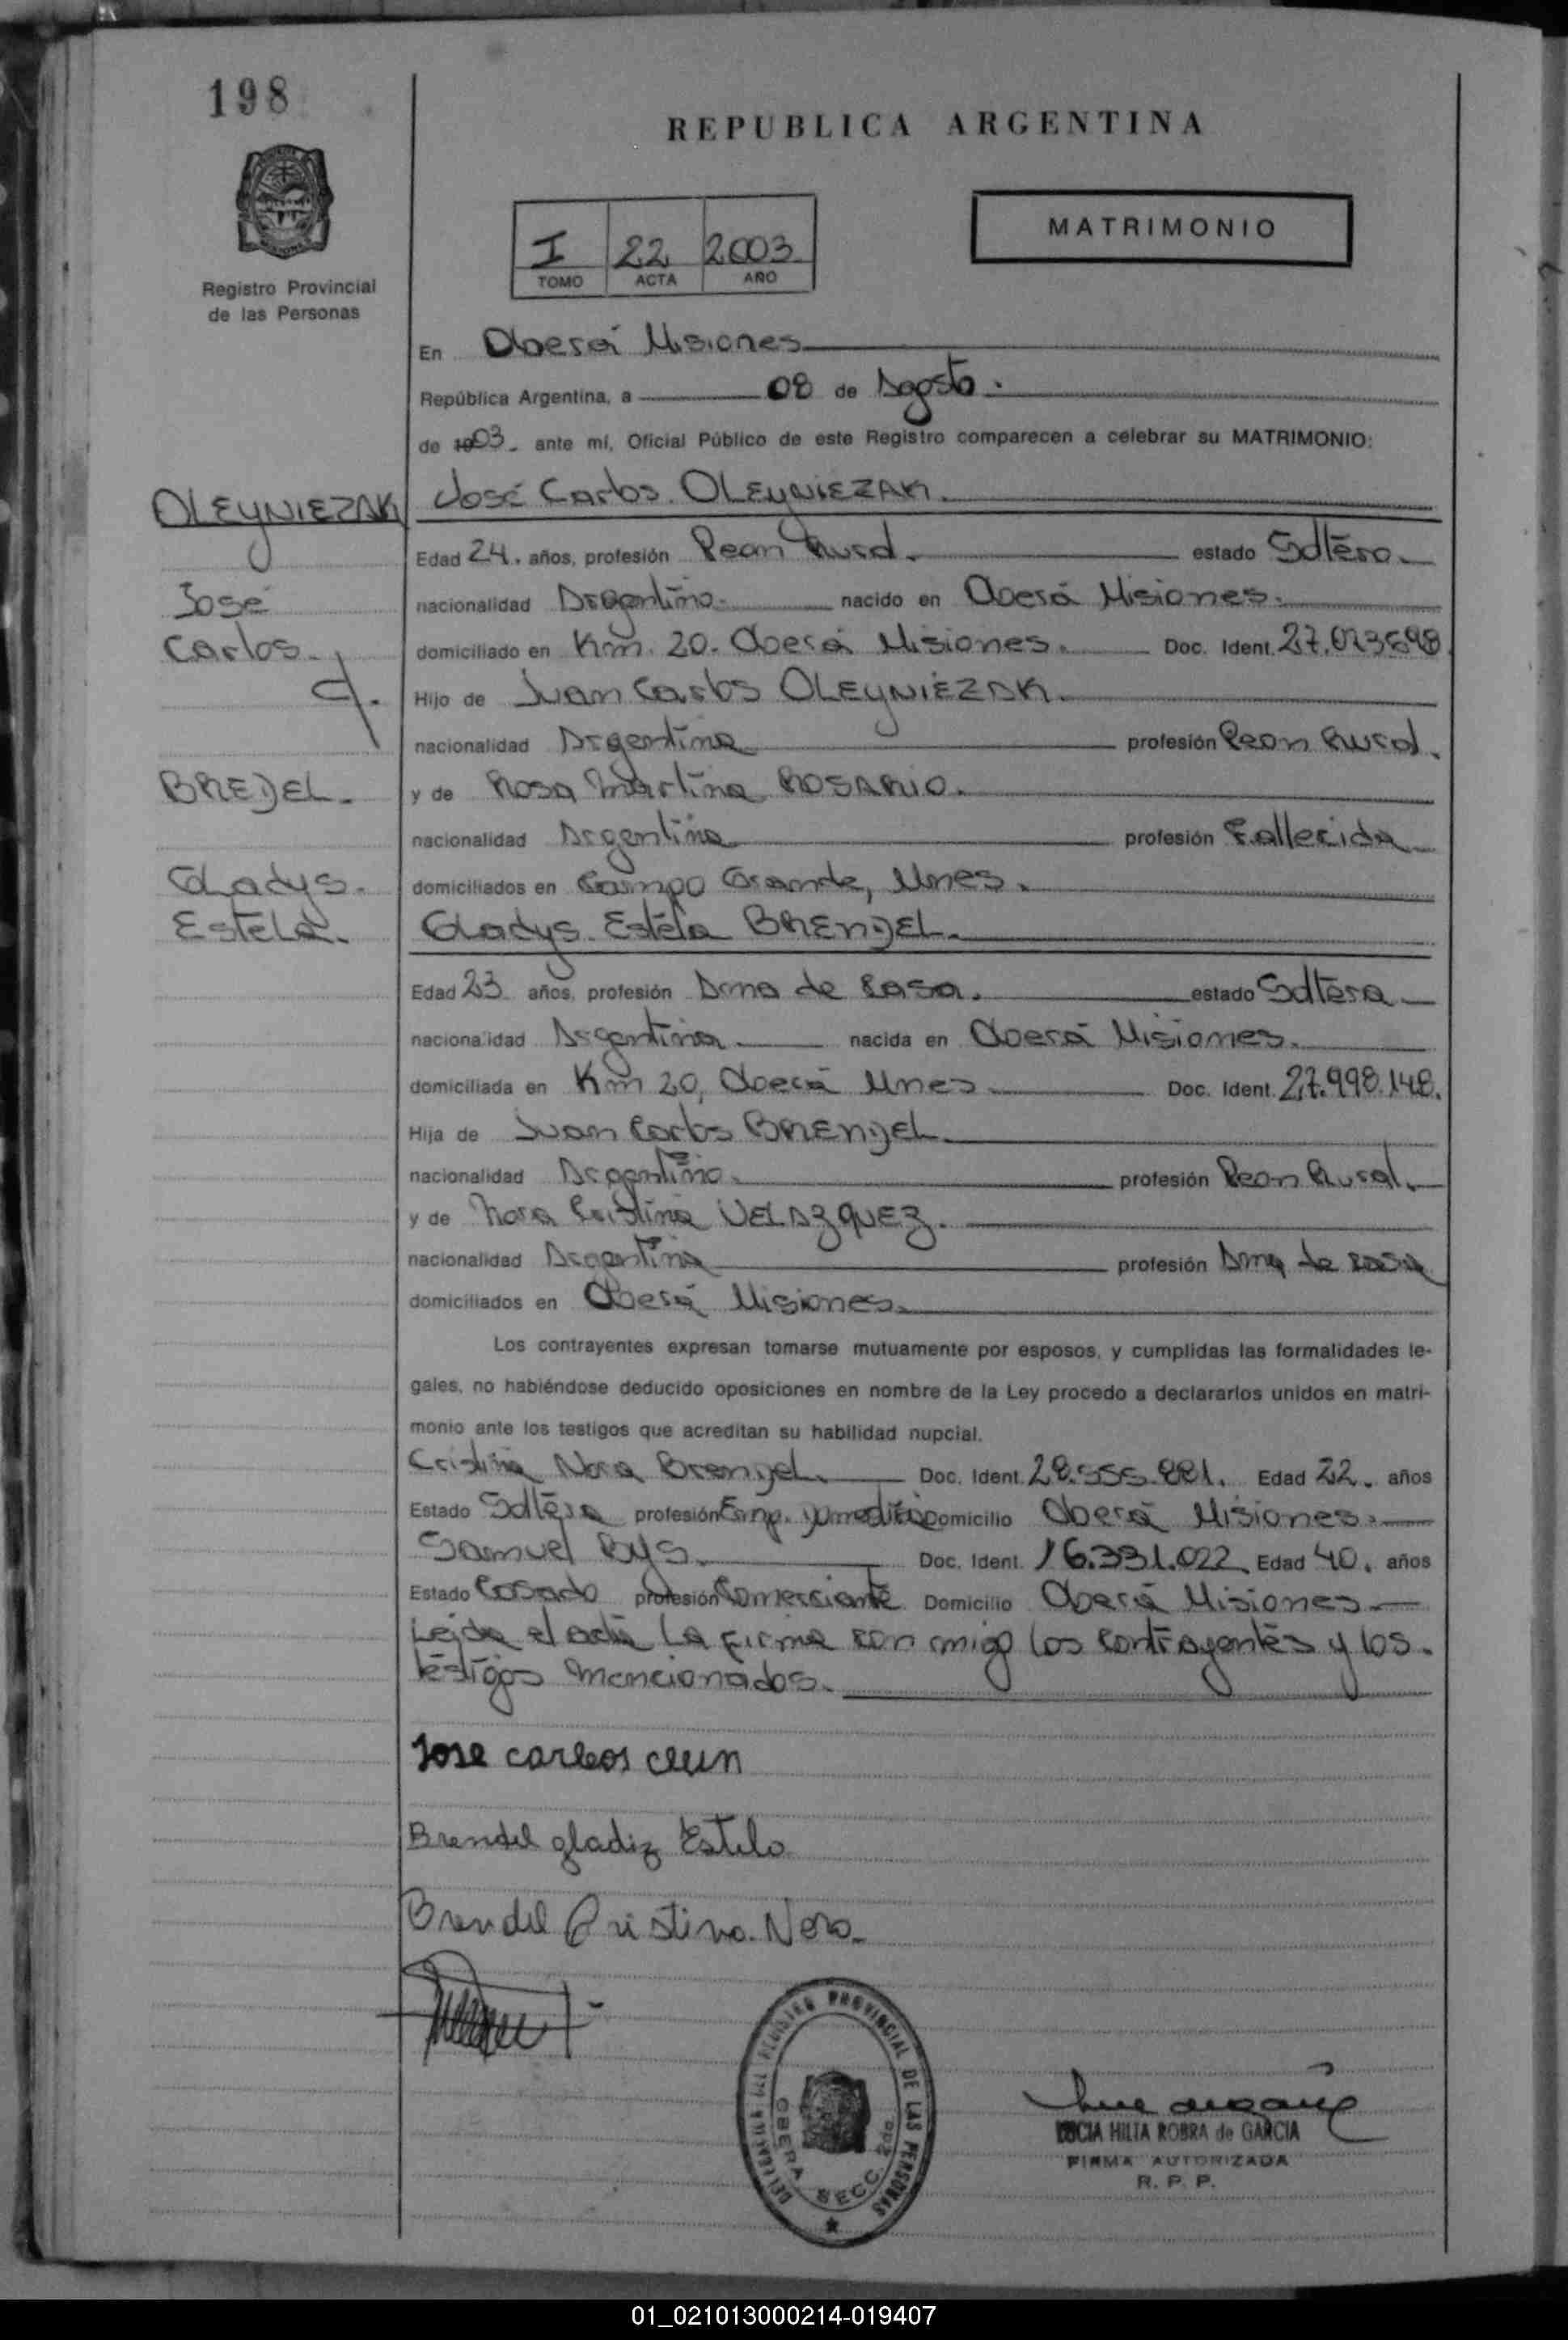 198
REPUBLICA ARGENTINA
Registro Provincial
de las Personas
I 22 2003
TOMO ACTA AÑO
MATRIMONIO
En Oberá Misiones
República Argentina, a 08 de Agosto.
de 1903. ante mí, Oficial Público de este Registro comparecen a celebrar su MATRIMONIO:
OLEYNIEZAK
José
Carlos.
c/.
BREDEL.
Gladys.
Estela.
José Carlos. OLEYNIEZAK.
Edad 24. años, profesión Peon Rural. estado Soltero.
nacionalidad Argentino. nacido en Oberá Misiones.
domiciliado en Km. 20. Oberá Misiones. Doc. Ident. 27.073698.
Hijo de Juan Carlos OLEYNIEZAK.
nacionalidad Argentina profesión Peon Rural.
y de Rosa Martina ROSARIO.
nacionalidad Argentina profesión Fallecida
domiciliados en Campo Grande, Mnes.
Gladys. Estela BRENDEL.
Edad 23 años, profesión Ama de Casa. estado Soltera
nacionalidad Argentina nacida en Oberá Misiones.
domiciliada en Km 20, Oberá Mnes Doc. Ident. 27.998.148.
Hija de Juan Carlos BRENDEL.
nacionalidad Argentino. profesión Peon Rural.
y de Nora Cristina VELAZQUEZ.
nacionalidad Argentina profesión Ama de casa
domiciliados en Oberá Misiones.
Los contrayentes expresan tomarse mutuamente por esposos, y cumplidas las formalidades le-
gales, no habiéndose deducido oposiciones en nombre de la Ley procedo a declararlos unidos en matri-
monio ante los testigos que acreditan su habilidad nupcial.
Cristina Nora Brendel. Doc. Ident. 28.555.881. Edad 22. años
Estado Soltera profesión Emp. Domicilio Oberá Misiones.
Samuel Doc. Ident. 16.331.022 Edad 40. años
Estado Casado profesión Comerciante Domicilio Oberá Misiones
Leída el acta La firma con migo los contrayentes y los.
testigos mencionados.
Jose carlos
Brendel gladiz Estela
Brendel Cristina. Nora.
DELEGACION DEL REGISTRO PROVINCIAL DE LAS PERSONAS
OBERA SECC. 2da.
LUCIA HILTA ROBRA de GARCIA
FIRMA AUTORIZADA
R. P. P.
01_021013000214-019407